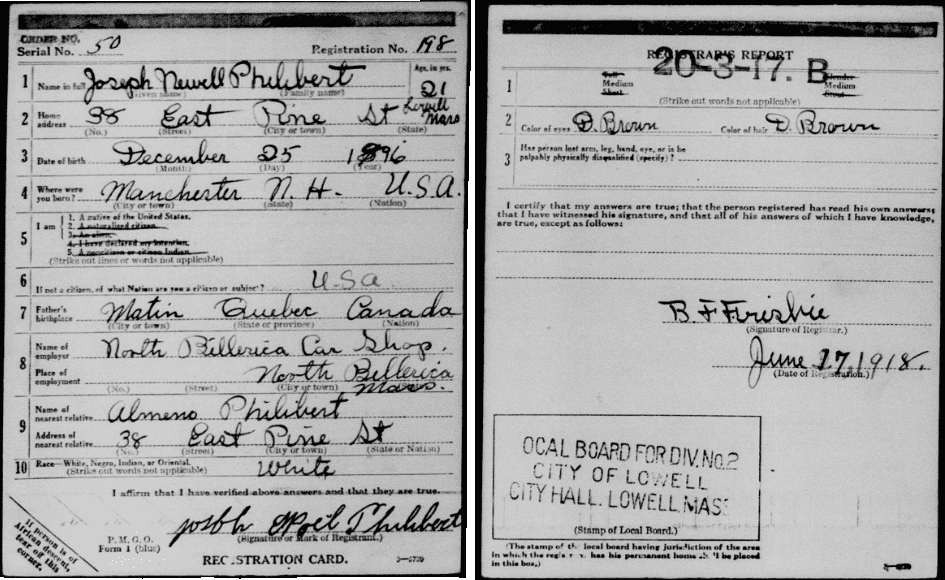 ORDER NO.
Serial No. 50 Registration No. 198
1 Name in full Joseph Newell Philibert Age, in yrs. 21
(Given name) (Family name)
2 Home address 38 East Pine St Lowell Mass
(No.) (Street) (City or town) (State)
3 Date of birth December 25 1896
(Month) (Day) (Year)
4 Where were you born? Manchester N.H. U.S.A.
(City or town) (State) (Nation)
5 I am
1. A native of the United States.
2. A naturalized citizen.
3. An alien.
4. I have declared my intention.
5. A noncitizen or citizen Indian.
(Strike out lines or words not applicable)
6 If not a citizen, of what Nation are you a citizen or subject? U-S-A
7 Father's birthplace Matin Quebec Canada
(City or town) (State or province) (Nation)
8 Name of employer North Billerica Car Shop.
Place of employment North Billerica Mass.
(No.) (Street) (City or town)
9 Name of nearest relative Almeno Philibert
Address of nearest relative 38 East Pine St
(No.) (Street) (City or town) (State or Nation)
10 Race—White, Negro, Indian, or Oriental. White
(Strike out words not applicable)
I affirm that I have verified above answers and that they are true.
Philibert
P. M. G. O. (Signature or Mark of Registrant.)
Form 1 (blue) REGISTRATION CARD. 3—5739
If person is of African descent, tear off this corner.
REGISTRAR'S REPORT
20-3-17. B
1 Tall Medium Short Slender Medium Stout
(Strike out words not applicable)
2 Color of eyes D. Brown Color of hair D. Brown
3 Has person lost arm, leg, hand, eye, or is he
palpably physically disqualified (specify)?
I certify that my answers are true; that the person registered has read his own answers;
that I have witnessed his signature, and that all of his answers of which I have knowledge,
are true, except as follows:
B. F. Frisbie
(Signature of Registrar.)
June 17, 1918.
(Date of Registration.)
OCAL BOARD FOR DIV. NO. 2
CITY OF LOWELL
CITY HALL. LOWELL, MASS
(Stamp of Local Board.)
(The stamp of the local board having jurisdiction of the area
in which the registrant has his permanent home shall be placed
in this box.)